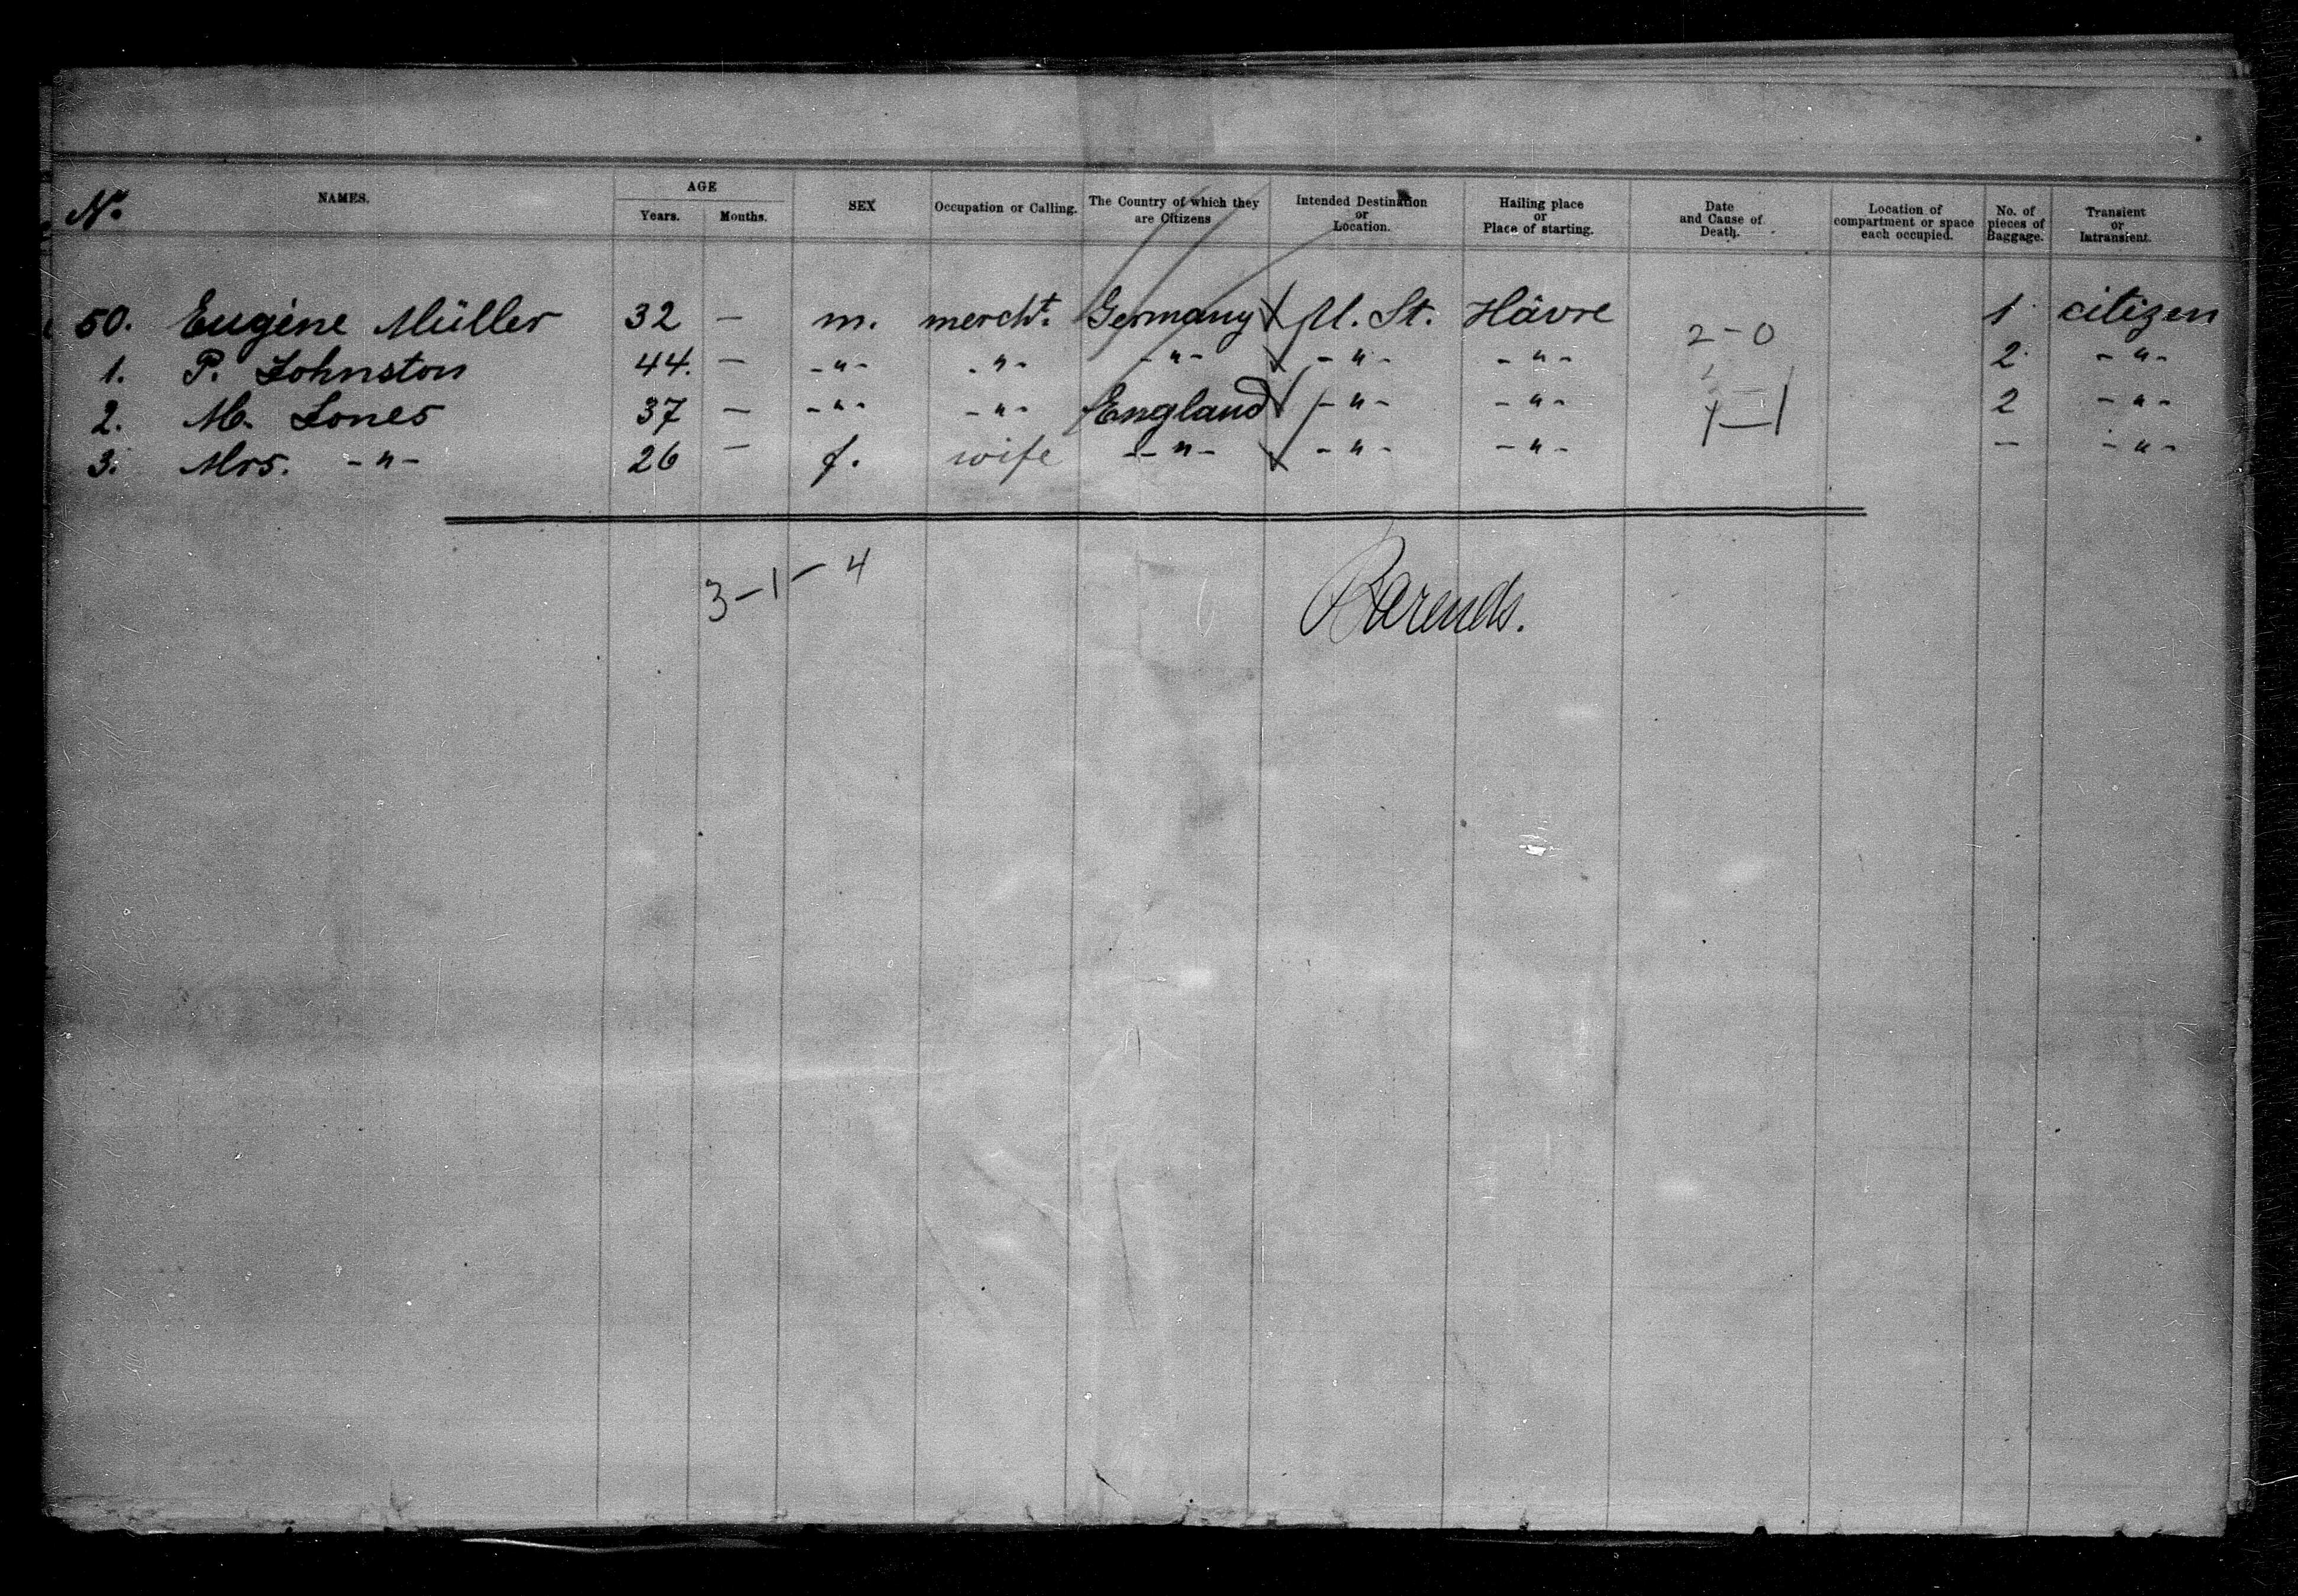 No. NAMES. AGE Years. Months. SEX Occupation or Calling. The Country of which they are Citizens Intended Destination or Location. Hailing place or Place of starting. Date and Cause of Death. Location of compartment or space each occupied. No. of pieces of Baggage. Transient or Intransient.
50. Eugène Müller 32 — m. mercht. Germany U. St. Hâvre 2-0 1 citizen
1. P. Johnston 44. — -"- -"- -"- -"- -"- 2 -"-
2. M. Jones 37 — -"- -"- England -"- -"- 1-1 2 -"-
3. Mrs. -"- 26 — f. wife -"- -"- -"- — -"-
3-1-4
Barends.